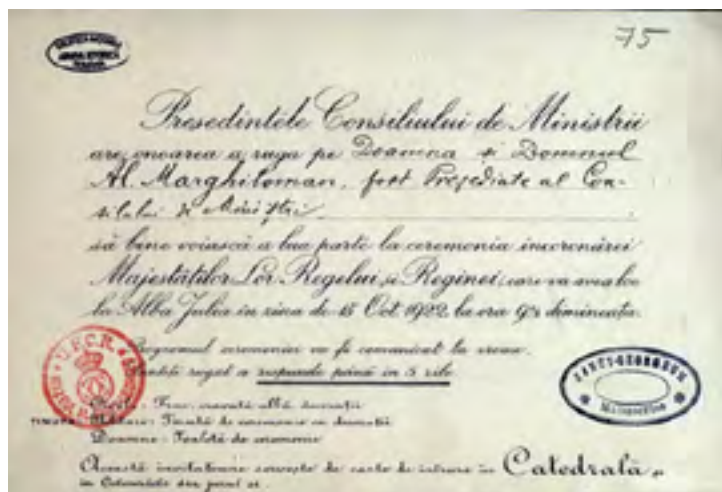 75
Presedintele Consiliului de Ministrii
are onoarea a ruga pe Doamna și Domnul
Al. Marghiloman, fost Președinte al Con-
siliului de Miniștri
să bine voiască a lua parte la ceremonia incoronărei
Majestăților Lor Regelui și Reginei, care va avea loc
la Alba Julia in ziua de 15 Oct 1922 la ora 9½ dimineața.
Programul ceremoniei va fi comunicat la vreme.
rugat a respunde până in 5 zile
Frac, cravată albă, decorații
TINUTA Militari: Ținută de ceremonie cu decorații
Doamne: Toaletă de ceremonie
Această invitatiune servește de carte de intrare in Catedrală și
in